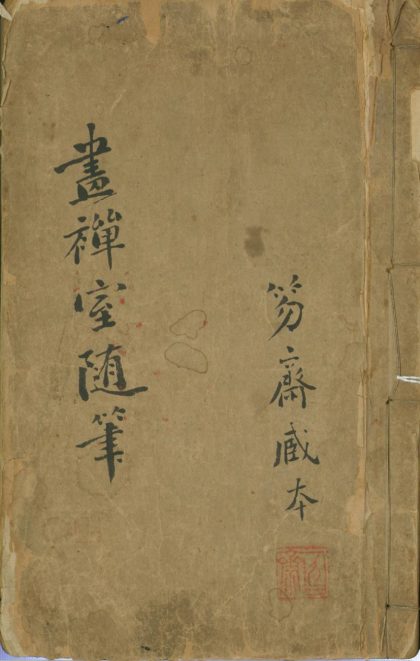 笏齋藏本
畫禪室随筆